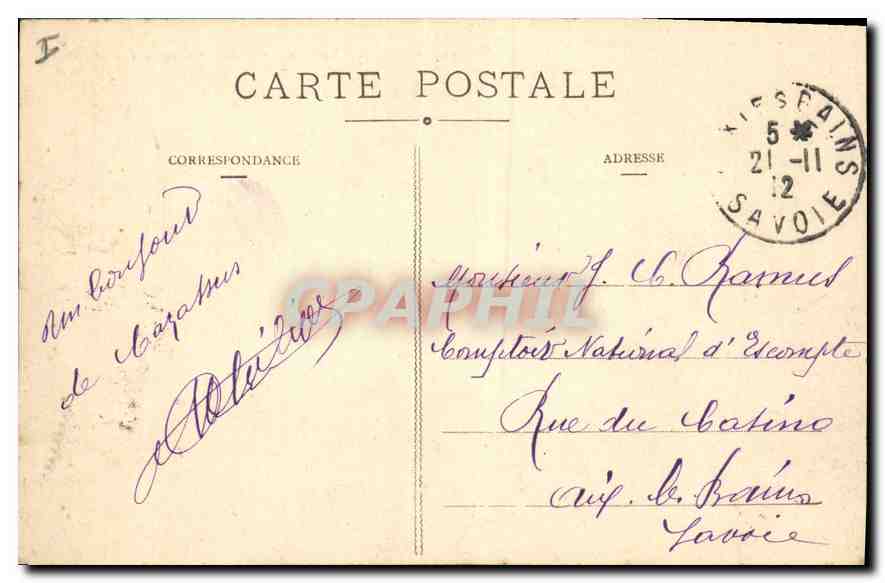 I
CARTE POSTALE
CORRESPONDANCE
ADRESSE
5
21 -11
12
SAVOIE
Un bonjour
de Cazassus
Monsieur J. C. Ramus
Comptoir National d'Escompte
Rue du Casino
Aix les Bains
Savoie
CPAPHIL